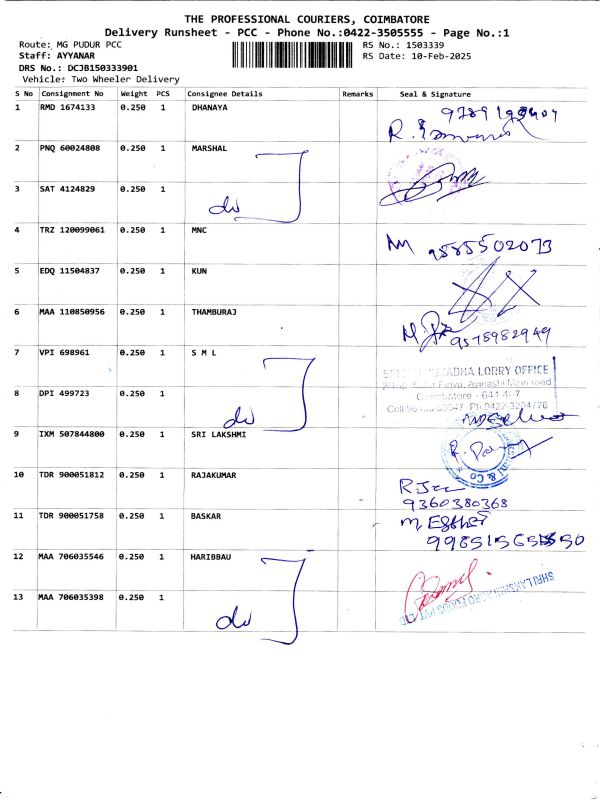 THE PROFESSIONAL COURIERS, COIMBATORE
Delivery Runsheet - PCC - Phone No.:0422-3505555 - Page No.:1
Route: MG PUDUR PCC RS No.: 1503339
Staff: AYYANAR RS Date: 10-Feb-2025
DRS No.: DCJB150333901
Vehicle: Two Wheeler Delivery
S No Consignment No Weight PCS Consignee Details Remarks Seal & Signature
1 RMD 1674133 0.250 1 DHANAYA
2 PNQ 60024808 0.250 1 MARSHAL
3 SAT 4124829 0.250 1
4 TRZ 120099061 0.250 1 MNC
9585502073
5 EDQ 11504837 0.250 1 KUN
6 MAA 110850956 0.250 1 THAMBURAJ
9578982949
7 VPI 698961 0.250 1 S M L
LORRY OFFICE
Avinashi Main road
8 DPI 499723 0.250 1
9 IXM 507844800 0.250 1 SRI LAKSHMI
10 TDR 900051812 0.250 1 RAJAKUMAR
9360380368
11 TDR 900051758 0.250 1 BASKAR
12 MAA 706035546 0.250 1 HARIBBAU
13 MAA 706035398 0.250 1